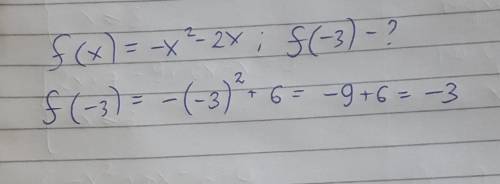 f(x) = -x² - 2x ; f(-3) - ?
f(-3) = -(-3)² + 6 = -9 + 6 = -3